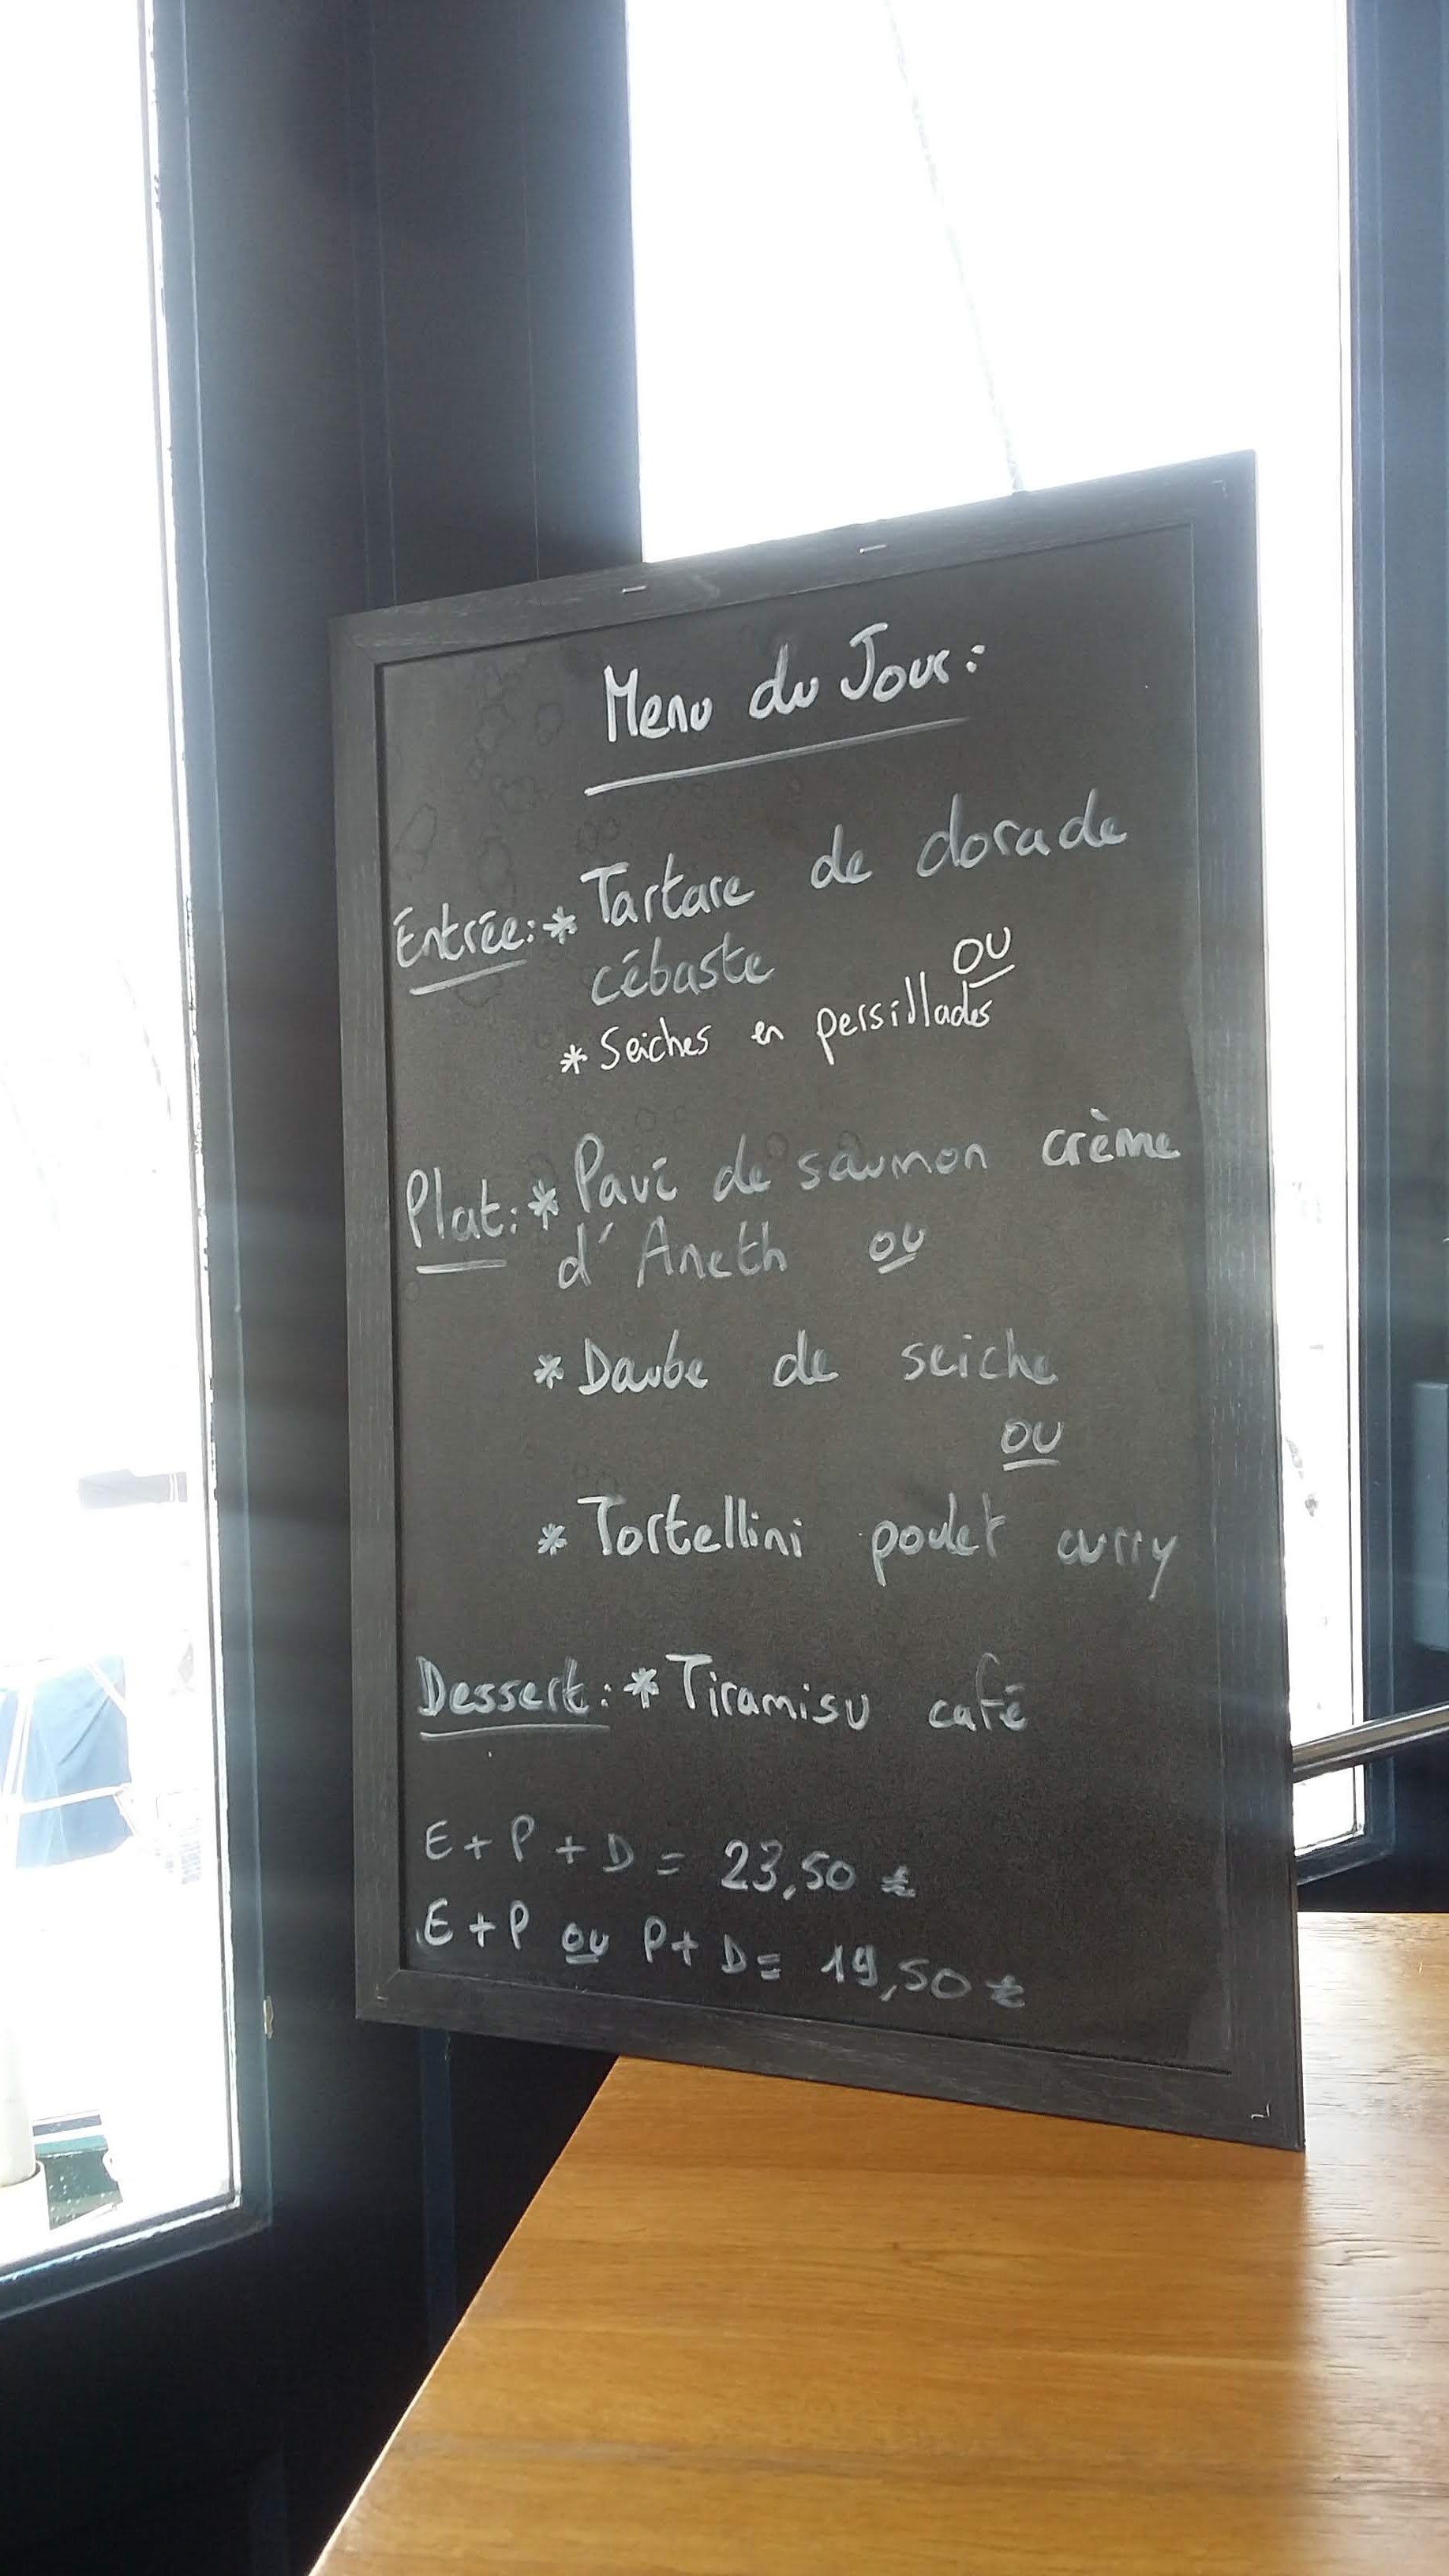 Menu du Jour:
Entrée: * Tartare de dorade
cébaste OU
* Seiches en persillades
Plat: * Pavé de saumon crème
d'Aneth ou
* Daube de seiche
OU
* Tortellini poulet curry
Dessert: * Tiramisu café
E + P + D = 23,50 €
E + P ou P + D = 19,50 €